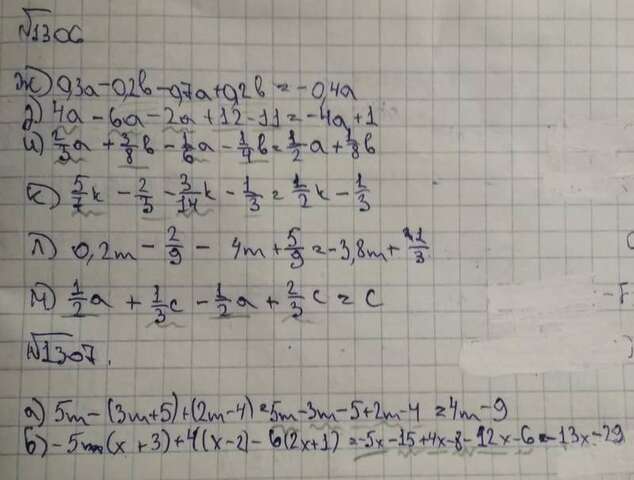 №1306
ж) 0,3a-0,2b-0,7a+0,2b = -0,4a
з) 4a - 6a - 2a + 12 - 11 = -4a + 1
и) 2/3 a + 3/8 b - 1/6 a - 1/4 b = 1/2 a + 1/8 b
к) 5/7 k - 2/3 - 3/14 k - 1/3 = 1/2 k - 1/3
л) 0,2m - 2/9 - 4m + 5/9 = -3,8m + 1/3
м) 1/2 a + 1/3 c - 1/2 a + 2/3 c = c
№1307.
а) 5m-(3m+5)+(2m-4)=5m-3m-5+2m-4 =4m-9
б) -5(x+3)+4(x-2)-6(2x+1) =-5x-15+4x-8-12x-6=-13x-29